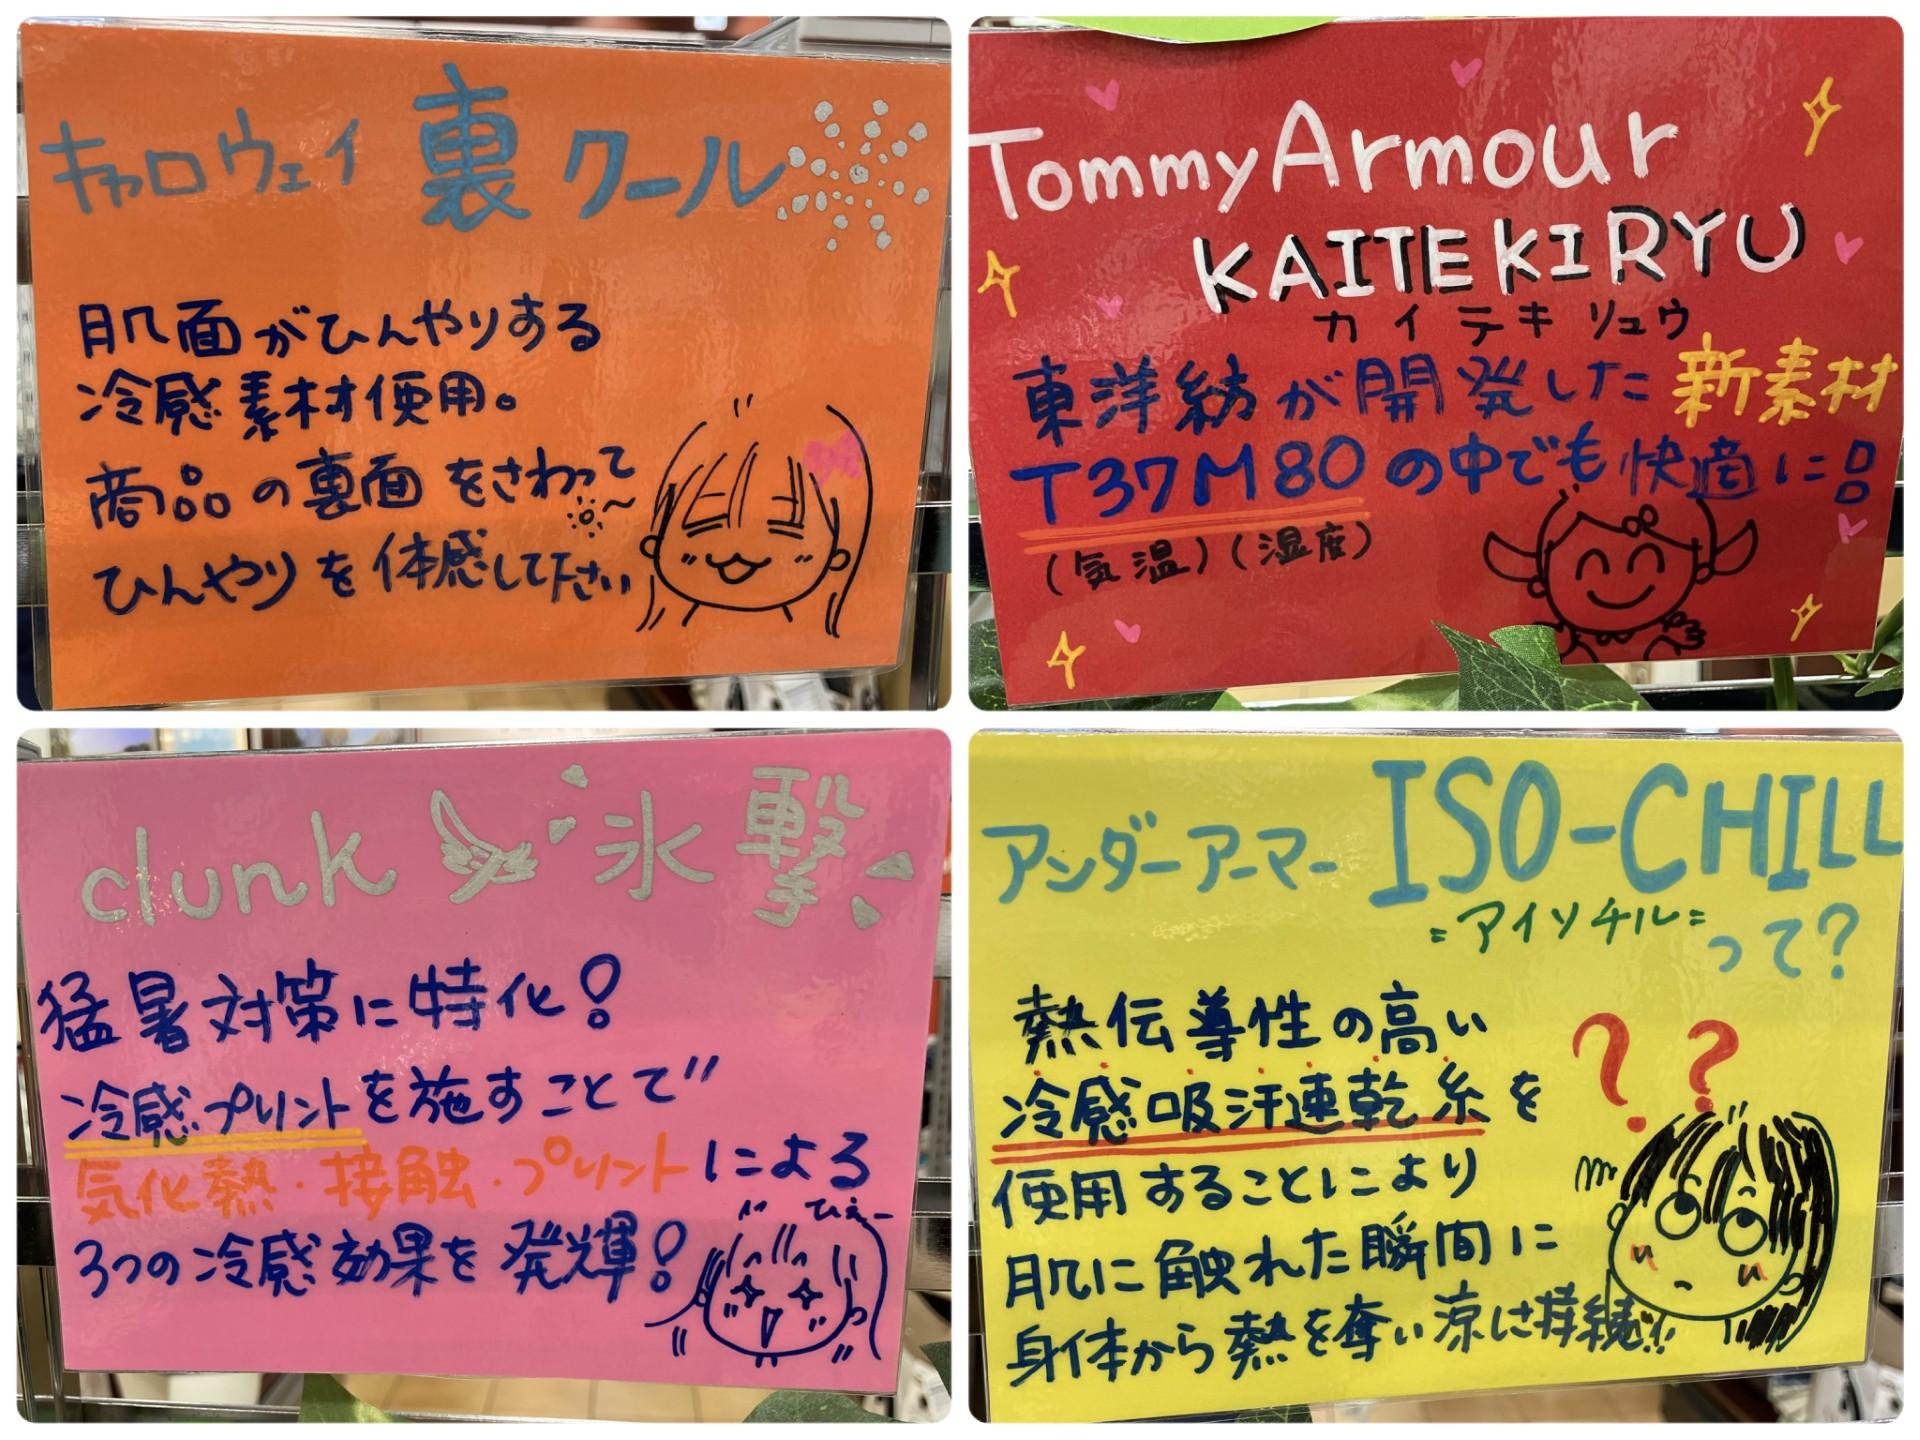 キャロウェイ 裏クール
肌面がひんやりする
冷感素材使用。
商品の裏面をさわって〜
ひんやりを体感して下さい
TommyArmour
KAITEKIRYU
カイテキリュウ
東洋紡が開発した新素材
T37M80の中でも快適に!!
(気温)(湿度)
clunk 氷撃
猛暑対策に特化!
冷感プリントを施すことで
気化熱・接触・プリントによる
3つの冷感効果を発揮!
ひえー
アンダーアーマー ISO-CHILL
=アイソチル= って?
熱伝導性の高い
??
冷感吸汗速乾糸を
使用することにより
肌に触れた瞬間に
身体から熱を奪い涼しさ持続!!